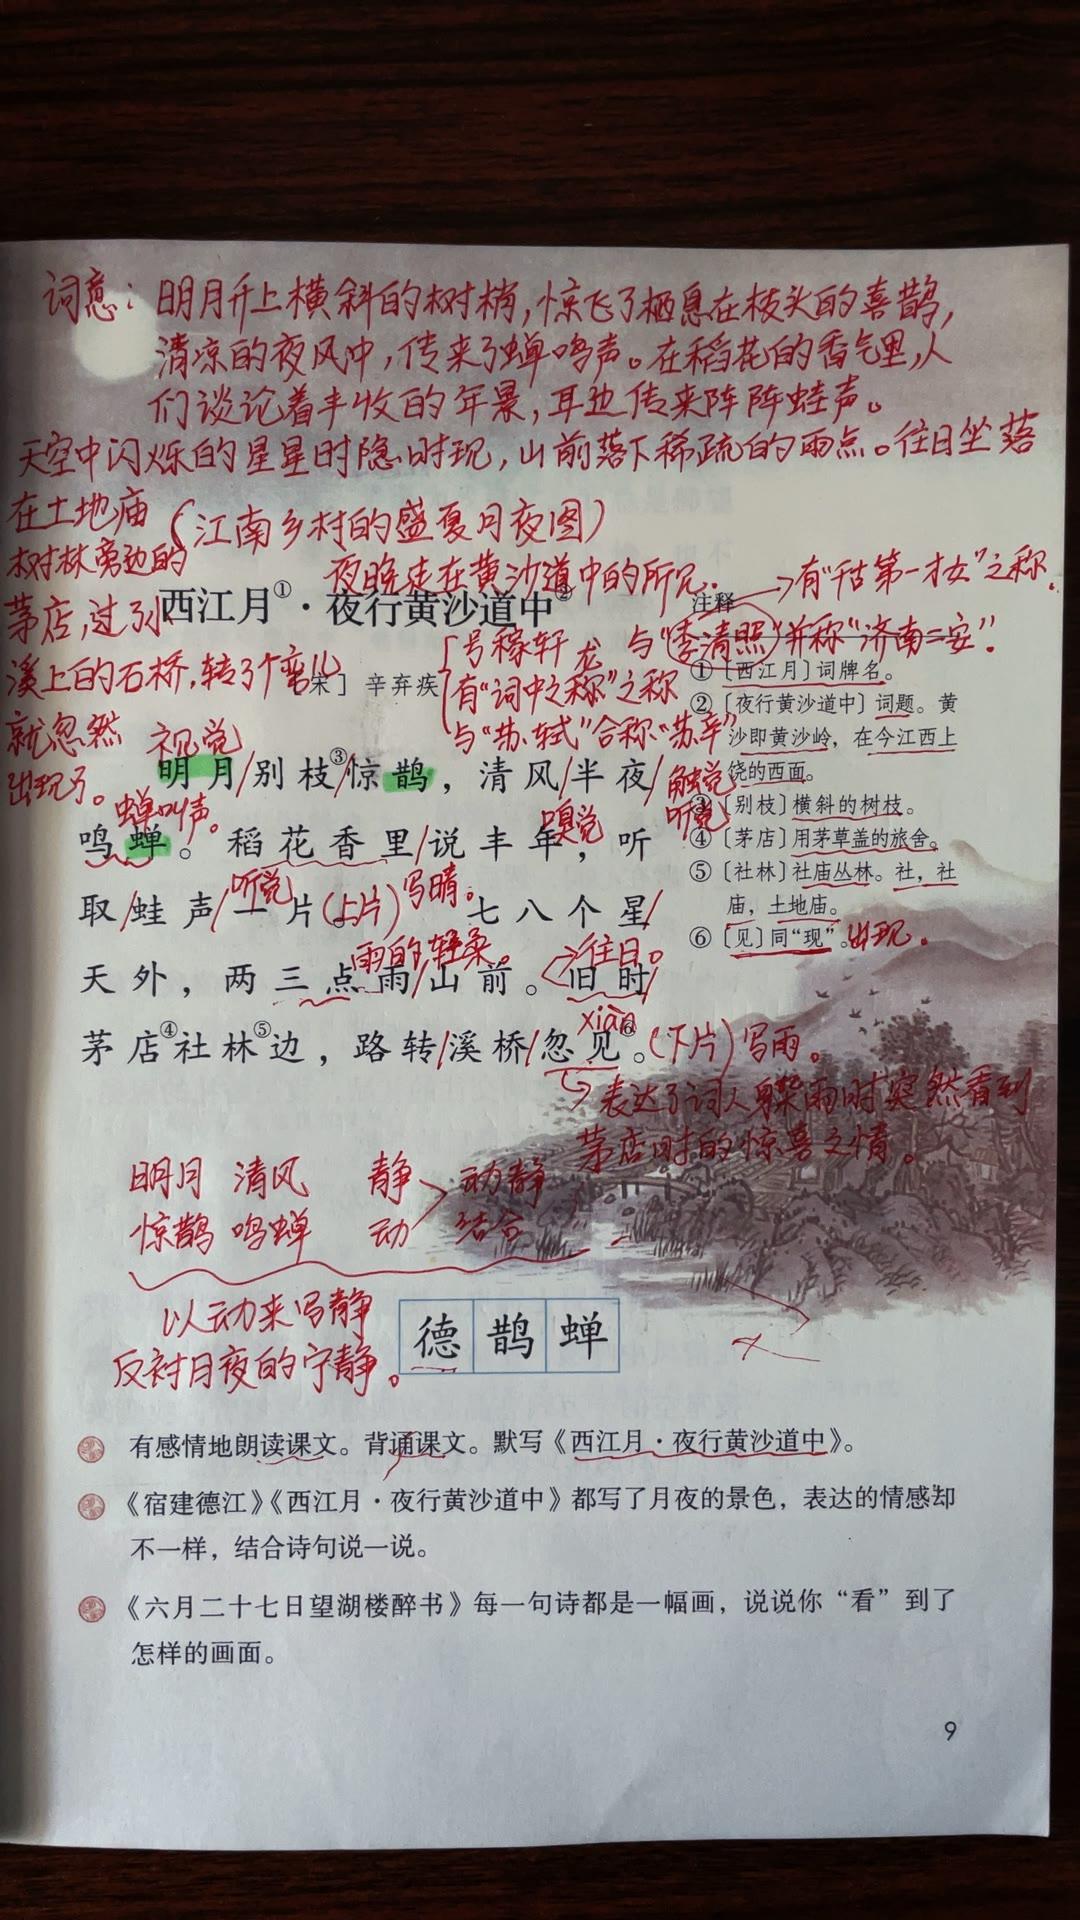 词意：明月升上横斜的树梢，惊飞了栖息在枝头的喜鹊，
清凉的夜风中，传来了蝉鸣声。在稻花的香气里，人
们谈论着丰收的年景，耳边传来阵阵蛙声。
天空中闪烁的星星时隐时现，山前落下稀疏的雨点。往日坐落
在土地庙
树林旁边的
茅店，过了
溪上的石桥，转了个弯儿
就忽然
出现了。
(江南乡村的盛夏月夜图)
夜晚走在黄沙道中的所见.
西江月①·夜行黄沙道中②
宋］ 辛弃疾
号稼轩
有“词中之称”之称
龙
与“苏轼”合称“苏辛”
与“李清照”并称“济南二安”.
→有“千古第一才女”之称.
注释
①［西江月］词牌名。
②［夜行黄沙道中］词题。黄
沙即黄沙岭，在今江西上
饶的西面。
③［别枝］横斜的树枝。
④［茅店］用茅草盖的旅舍。
⑤［社林］社庙丛林。社，社
庙，土地庙。
⑥［见］同“现”。出现。
视觉
明月/别枝③/惊鹊，清风/半夜/
触觉
听觉
蝉叫声。
嗅觉
鸣蝉。稻花香里/说丰年，听
听觉
取/蛙声/一片(上片)写晴。 七八个星/
雨的轻柔。
→往日。
天外，两三点雨/山前。旧时/
xiàn
茅店④社林⑤边，路转/溪桥/忽见⑥。(下片)写雨。
→表达了词人躲雨时突然看到
茅店时的惊喜之情。
明月 清风 静
惊鹊 鸣蝉 动
动静
结合
以动来写静
反衬月夜的宁静。
德 鹊 蝉
有感情地朗读课文。背诵课文。默写《西江月·夜行黄沙道中》。
《宿建德江》《西江月·夜行黄沙道中》都写了月夜的景色，表达的情感却
不一样，结合诗句说一说。
《六月二十七日望湖楼醉书》每一句诗都是一幅画，说说你“看”到了
怎样的画面。
9